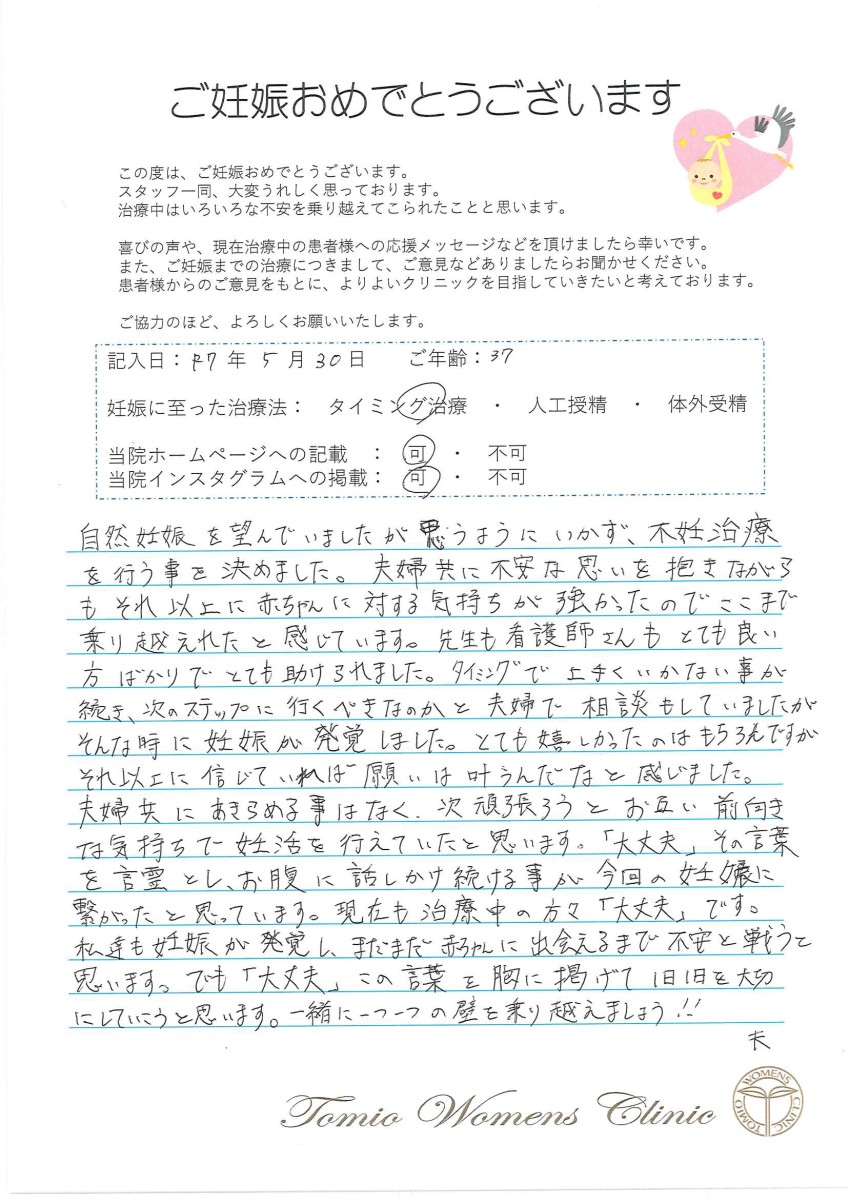 ご妊娠おめでとうございます
この度は、ご妊娠おめでとうございます。
スタッフ一同、大変うれしく思っております。
治療中はいろいろな不安を乗り越えてこられたことと思います。
喜びの声や、現在治療中の患者様への応援メッセージなどを頂けましたら幸いです。
また、ご妊娠までの治療につきまして、ご意見などありましたらお聞かせください。
患者様からのご意見をもとに、よりよいクリニックを目指していきたいと考えております。
ご協力のほど、よろしくお願いいたします。
記入日：R7年 5月30日 ご年齢：37
妊娠に至った治療法： タイミング治療 ・ 人工授精 ・ 体外受精
当院ホームページへの記載 ： 可 ・ 不可
当院インスタグラムへの掲載： 可 ・ 不可
自然妊娠を望んでいましたが思うようにいかず、不妊治療
を行う事を決めました。夫婦共に不安な思いを抱きながら
もそれ以上に赤ちゃんに対する気持ちが強かったのでここまで
乗り越えれたと感じています。先生も看護師さんもとても良い
方ばかりでとても助けられました。タイミングで上手くいかない事が
続き、次のステップに行くべきなのかと夫婦で相談もしていましたが
そんな時に妊娠が発覚しました。とても嬉しかったのはもちろんですが
それ以上に信じていれば願いは叶うんだなと感じました。
夫婦共にあきらめる事はなく、次頑張ろうとお互い前向き
な気持ちで妊活を行えていたと思います。「大丈夫」その言葉
を言霊とし、お腹に話しかけ続ける事が今回の妊娠に
繋がったと思っています。現在も治療中の方々「大丈夫」です。
私達も妊娠が発覚し、まだまだ赤ちゃんに出会えるまで不安と戦うと
思います。でも「大丈夫」この言葉を胸に掲げて1日1日を大切
にしていこうと思います。一緒に一つ一つの壁を乗り越えましょう！！
夫
Tomio Womens Clinic
TOMIO WOMENS CLINIC